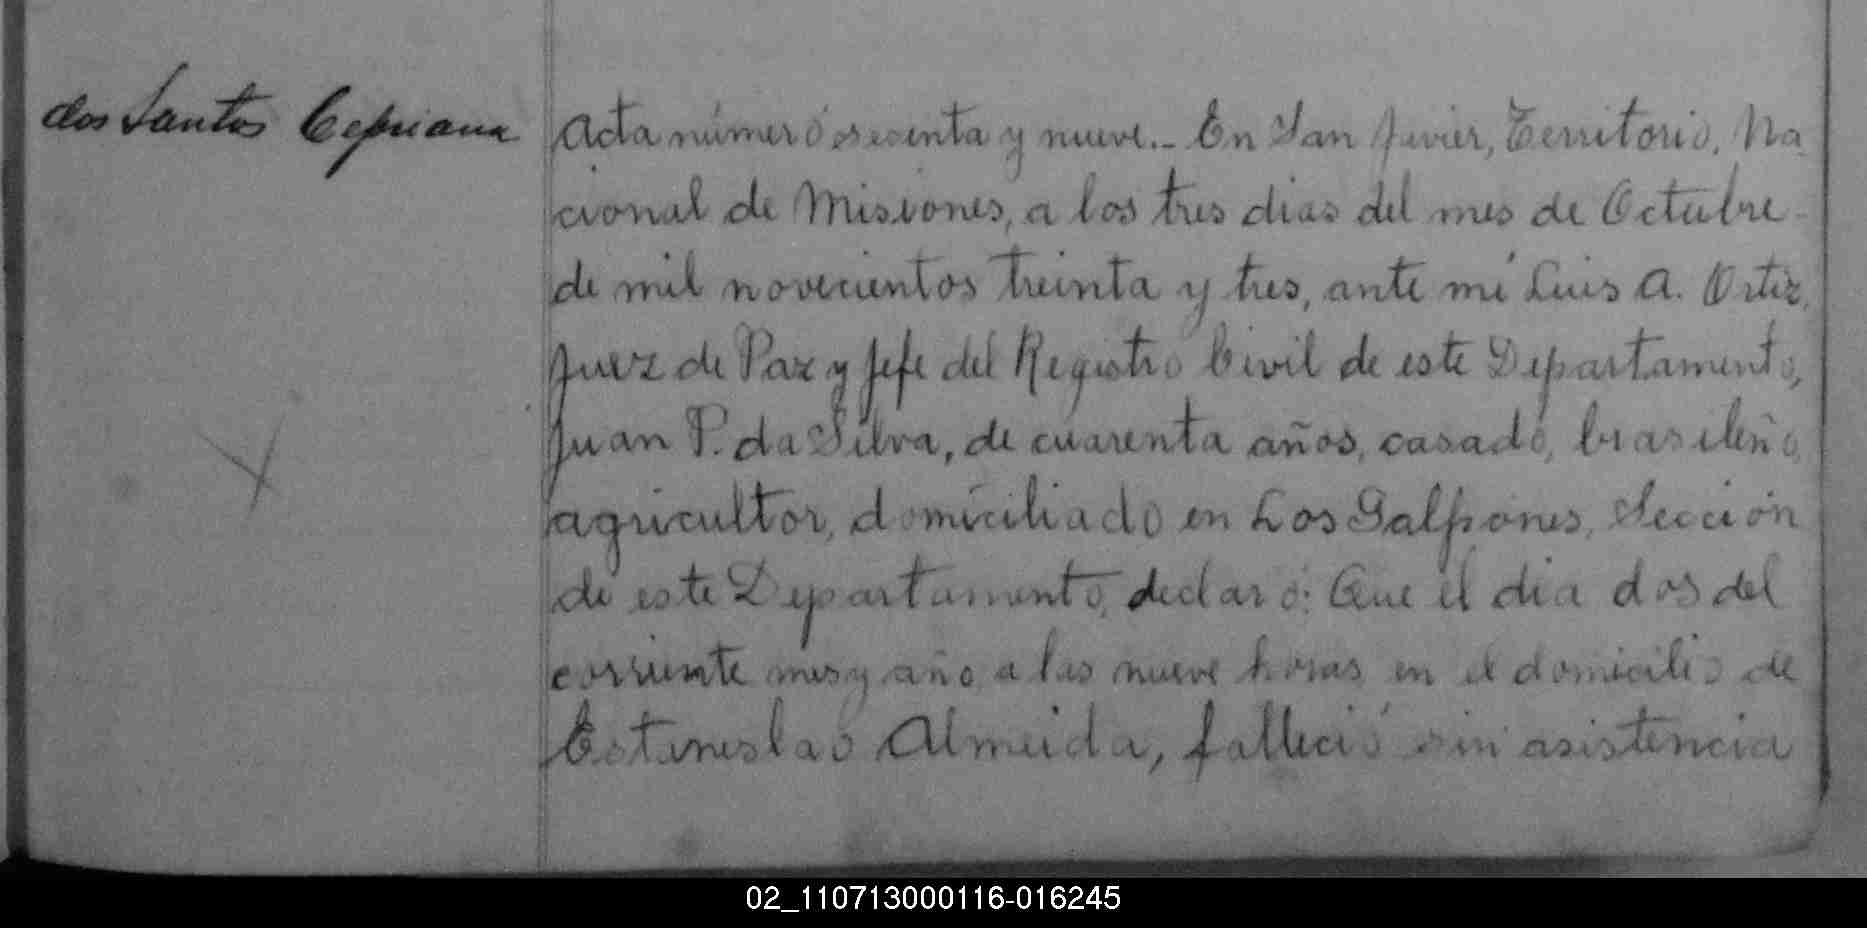 dos Santos Cepriana
Acta número sesenta y nueve.- En San Javier, Territorio, Na
cional de Misiones, a los tres dias del mes de Octubre
de mil novecientos treinta y tres, ante mí Luis A. Ortiz,
Juez de Paz y Jefe del Registro Civil de este Departamento,
Juan P. da Silva, de cuarenta años, casado, brasileño,
agricultor, domiciliado en Los Galpones, Sección
de este Departamento, declaró: Que el dia dos del
corriente mes y año a las nueve horas en el domicilio de
Estanislao Almeida, falleció sin asistencia
02_110713000116-016245